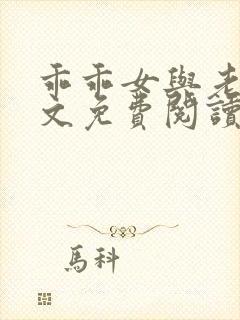 乖乖女與老
文免費閱讀
馬科